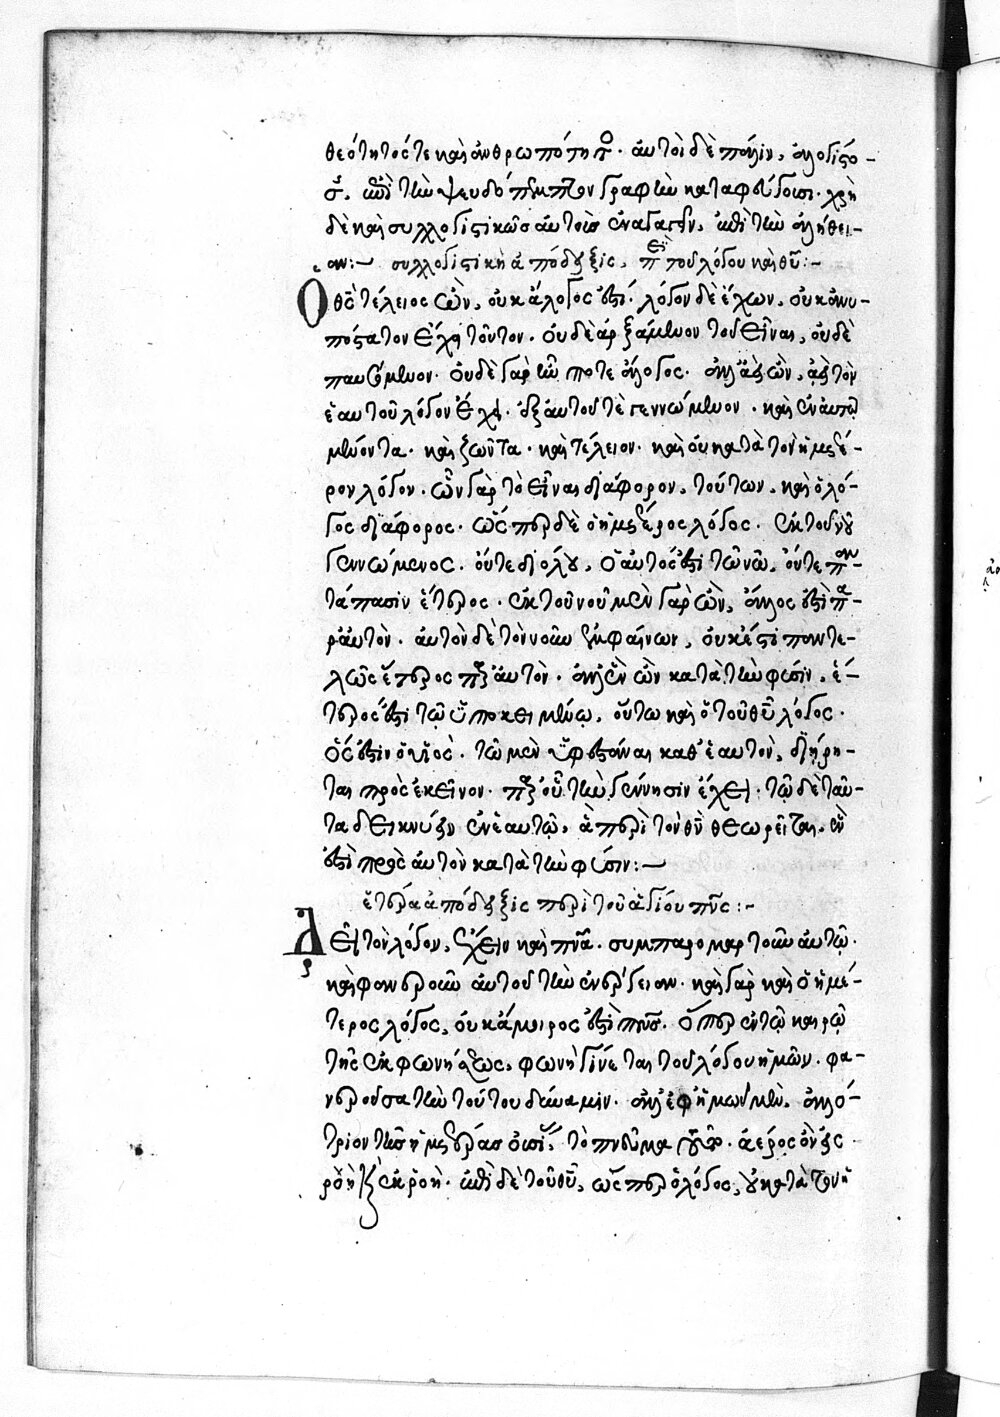 θεότητός τε καὶ ἀνθρωπότητος. αὐτοὶ δὲ πάλιν, ἀλογίστο-
τῶν ψευδο γραφῶν καταφεύγουσι. χρὴ
δὲ καὶ συλλογιστικῶς αὐτοῖς ἐπὶ τὴν ἀλήθει-
αν:— συλλογιστικὴ ἀπόδειξις, περὶ τοῦ λόγου καὶ θῦ:—
Ὁ θς τέλειος ὢν, οὐκ ἄλογος ἐστί. λόγον δὲ ἔχων, οὐκ ἀνυ-
πόστατον ἔχει τοῦτον. οὐδὲ ἀρξάμενον τοῦ εἶναι, οὐδὲ
παυσόμενον. οὐδὲ γὰρ ἦν ποτε ἄλογος. ἀλλ' ἀεὶ ὢν, ἀεὶ τὸν
ἑαυτοῦ λόγον ἔχει. ἐξ αὐτοῦ τε γεννώμενον. καὶ ἐν αὐτῷ
μένοντα. καὶ ζῶντα. καὶ τέλειον. καὶ οὐ κατὰ τὸν ἡμέτε-
ρον λόγον. ὧν γὰρ τὸ εἶναι διάφορον, τούτων, καὶ ὁ λό-
γος διάφορος. ὥσπερ δὲ ὁ ἡμέτερος λόγος. ἐκ τοῦ νοῦ
γεννώμενος. οὔτε δι' ὅλου, ὁ αὐτός ἐστι τῷ νῷ, οὔτε παν-
τάπασιν ἕτερος. ἐκ τοῦ νοῦ μὲν γὰρ ὢν, ἄλλος ἐστὶ πα-
ρ' αὐτὸν. αὐτὸν δὲ τὸν νοῦν ἐμφαίνων, οὐκέτι παντε-
λῶς ἕτερος παρ' αὐτὸν. ἀλλ' ἓν ὢν κατὰ τὴν φύσιν, ἕ-
τερός ἐστι τῷ ὑποκειμένῳ. οὕτω καὶ ὁ τοῦ θῦ λόγος.
ὅς ἐστιν ὁ υἱὸς. τῷ μὲν ὑφεστάναι καθ' ἑαυτὸν, διῄρη-
ται πρὸς ἐκεῖνον. παρ' οὗ τὴν γέννησιν ἔχει. τῷ δὲ ταῦ-
τα δεικνύειν ἐν ἑαυτῷ, ἃ περὶ τὸν θν θεωρεῖται, ἕν
ἐστι πρὸς αὐτὸν κατὰ τὴν φύσιν:—
ἑτέρα ἀπόδειξις περὶ τοῦ ἁγίου πνς:—
Δεῖ τὸν λόγον, ἔχειν καὶ πνα. συμπαρομαρτοῦν αὐτῷ.
καὶ φανεροῦν αὐτοῦ τὴν ἐνέργειαν. καὶ γὰρ καὶ ὁ ἡμέ-
τερος λόγος, οὐκ ἄμοιρος ἐστὶ πνς. ὅπερ ἐν τῷ καιρῷ
τῆς ἐκφωνήσεως, φωνὴ γίνεται τοῦ λόγου ἡμῶν. φα-
νεροῦσα τὴν τούτου δύναμιν. ἀλλ' ἐφ' ἡμῶν μὲν, ἀλλό-
τριον τῆς ἡμετέρας οὐσίας τὸ πνεῦμα ἀέρος
ἐπὶ δὲ τοῦ θῦ, ὥσπερ ὁ λόγος, οὐ κατὰ